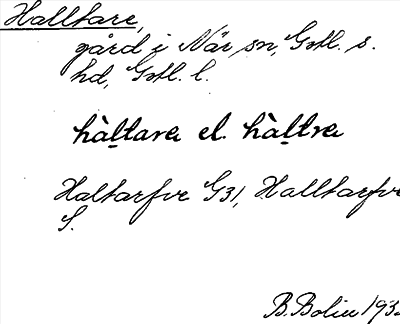 Halltare,
gård i När sn, Gotl. s.
hd, Gotl. l.
hàḻtara el. hàḻtra
Haltarfve G31, Halltarfve
S.
B. Bolin 193